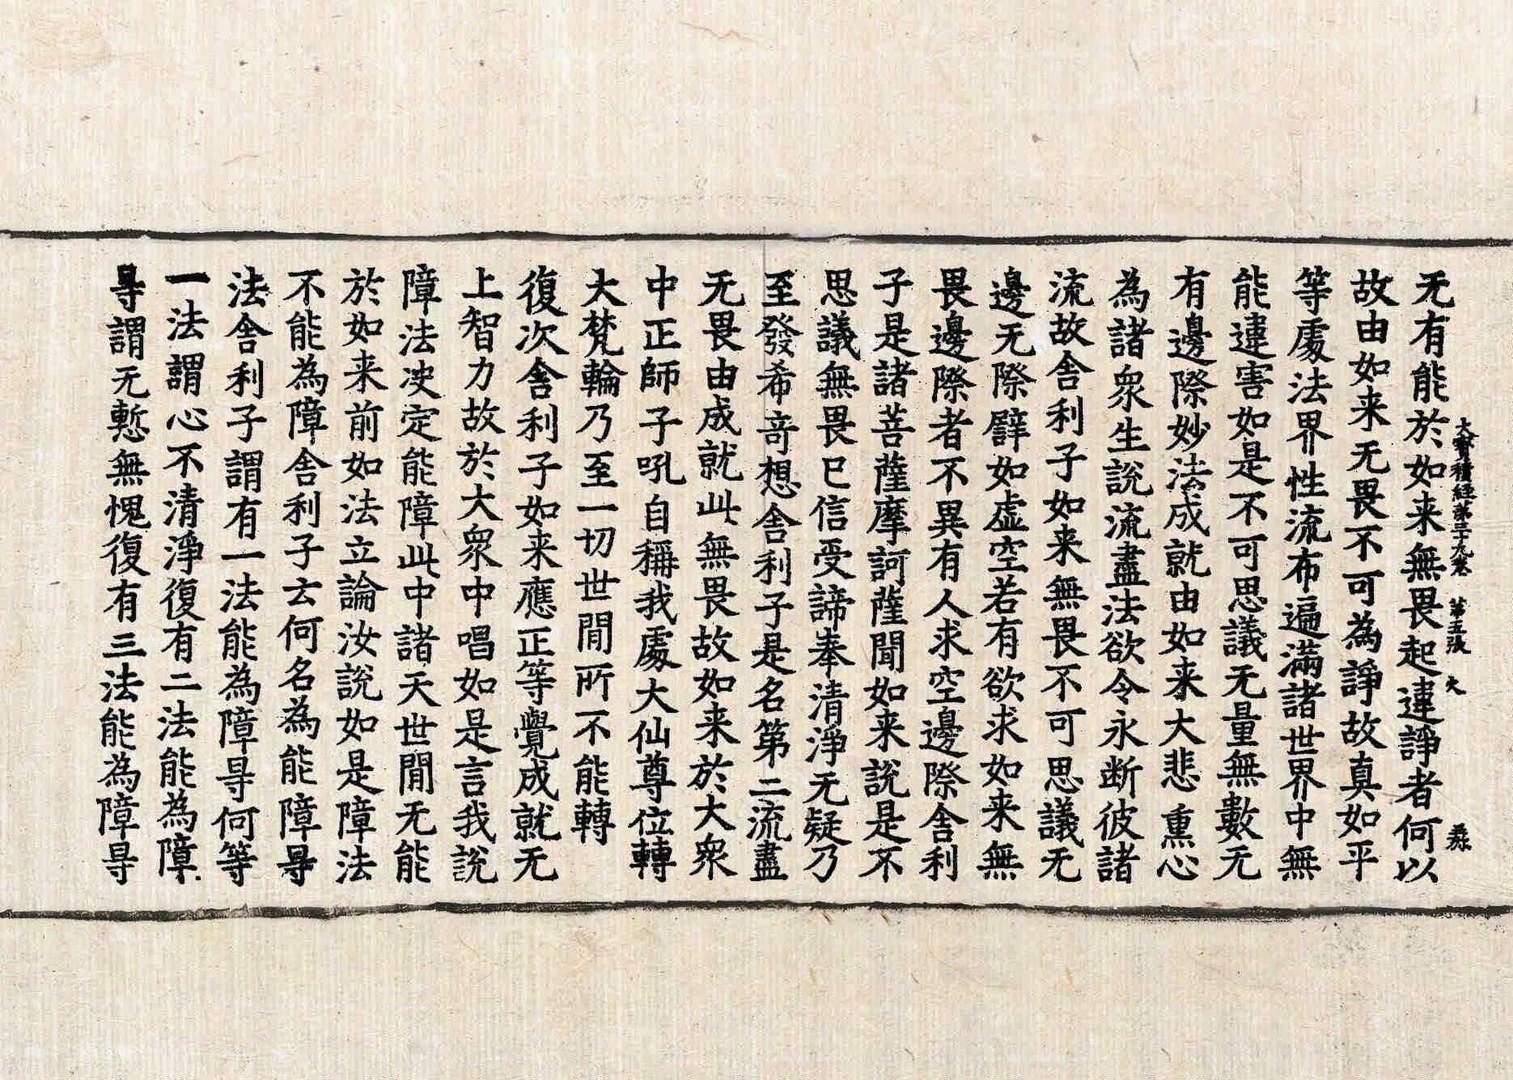 大寶積經第三十九卷 第五張 火
无有能於如来無畏起違諍者何以
故由如来无畏不可為諍故真如平
等處法界性流布遍滿諸世界中無
能違害如是不可思議无量無數无
有邊際妙法成就由如来大悲熏心
為諸衆生說流盡法欲令永断彼諸
流故舍利子如来無畏不可思議无
邊无際譬如虛空若有欲求如来無
畏邊際者不異有人求空邊際舍利
子是諸菩薩摩訶薩聞如来說是不
思議無畏已信受諦奉清淨无疑乃
至發希竒想舍利子是名第二流盡
无畏由成就此無畏故如来於大衆
中正師子吼自稱我處大仙尊位轉
大梵輪乃至一切世閒所不能轉
復次舍利子如来應正等覺成就无
上智力故於大衆中唱如是言我說
障法决定能障此中諸天世閒无能
於如来前如法立論汝說如是障法
不能為障舍利子云何名為能障㝵
法舍利子謂有一法能為障㝵何等
一法謂心不清淨復有二法能為障
㝵謂无慙無愧復有三法能為障㝵